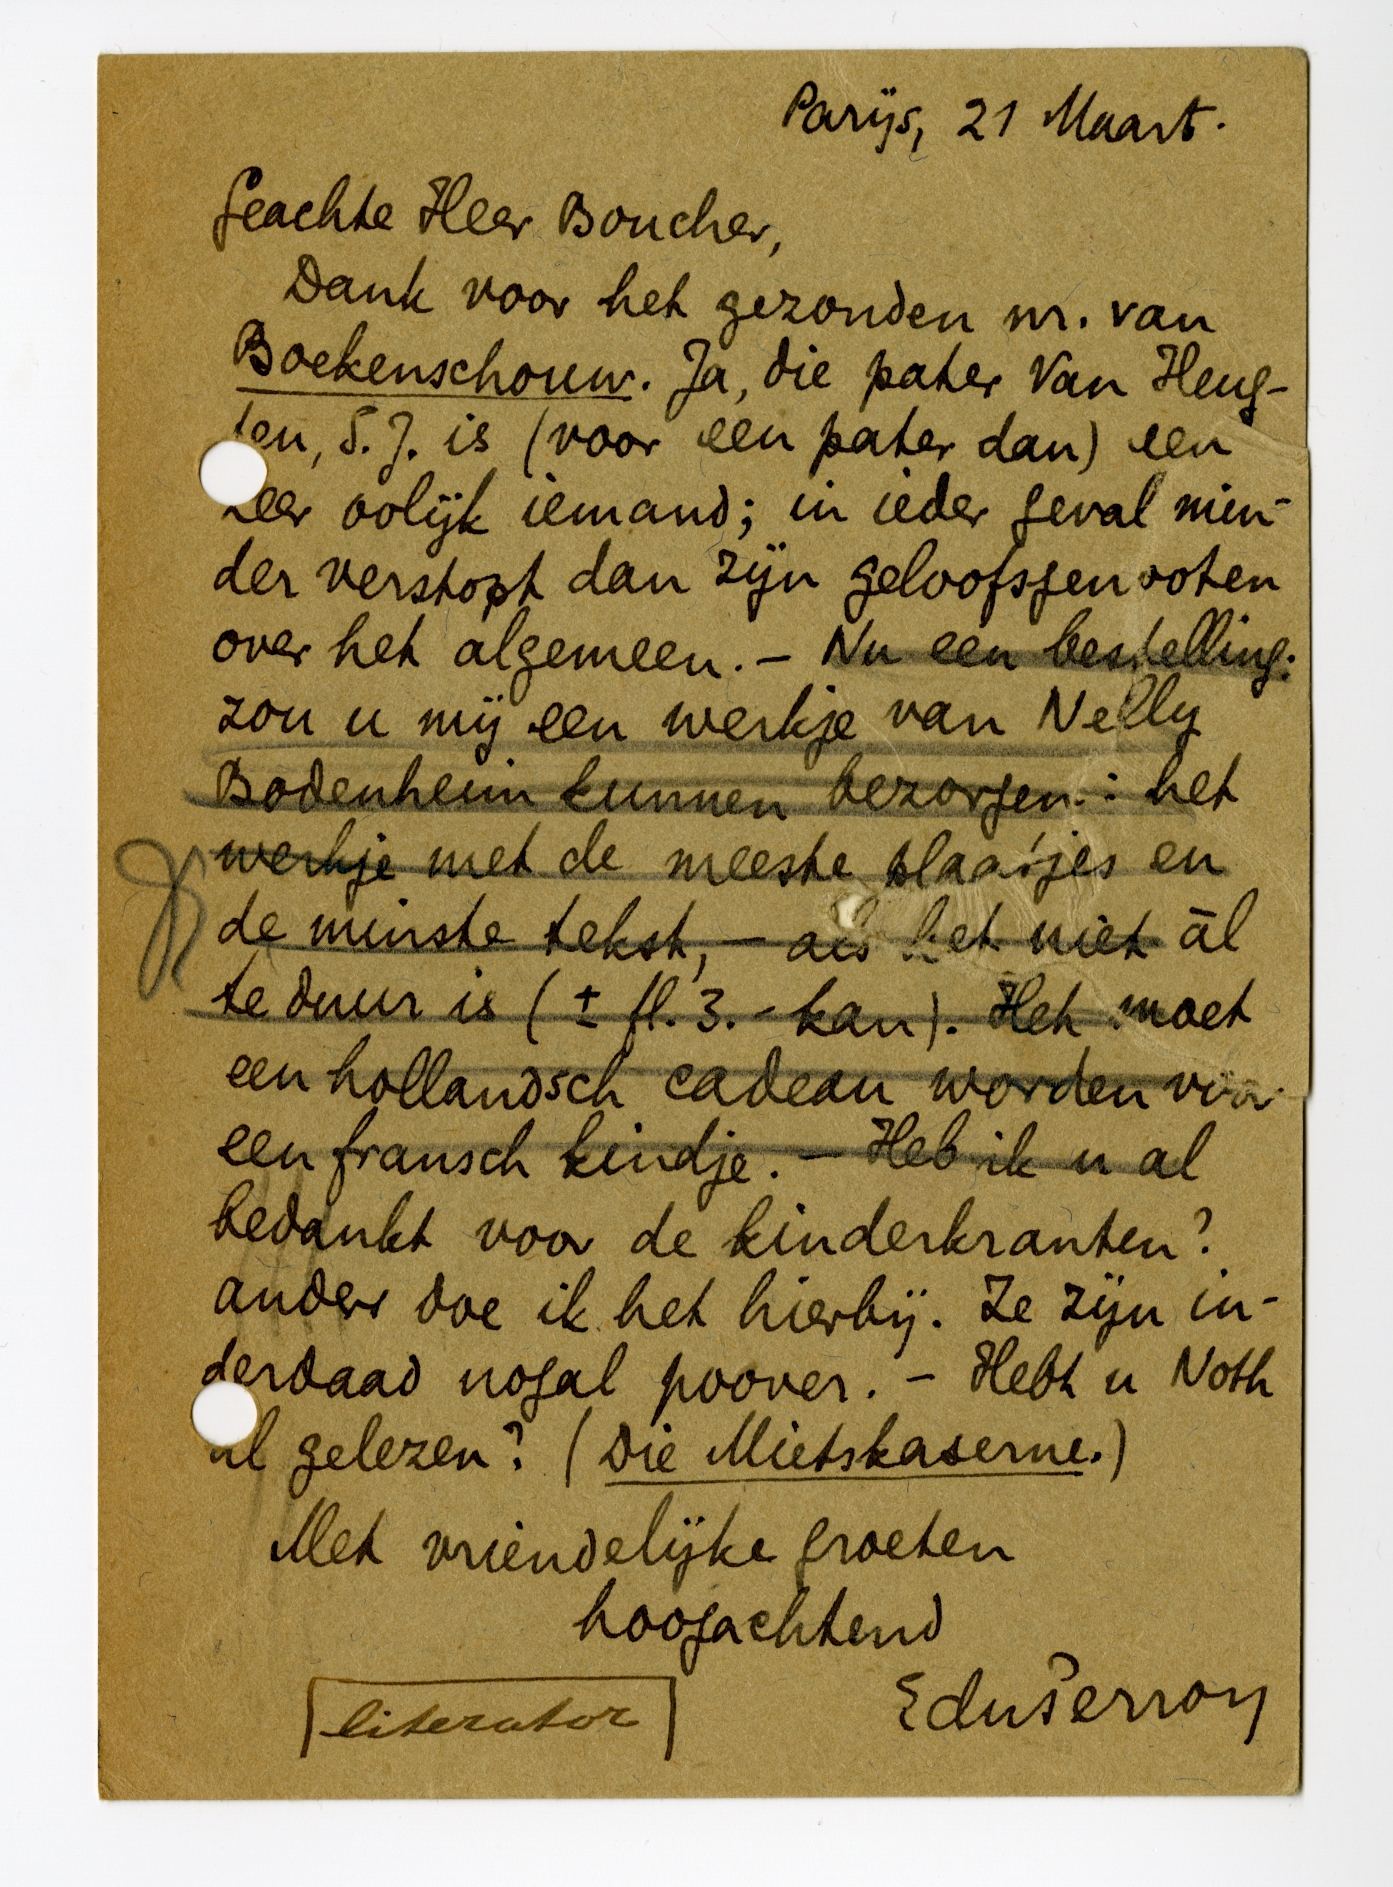 Parijs, 21 Maart.
Geachte Heer Boucher,
Dank voor het gezonden nr. van
Boekenschouw. Ja, die pater Van Heug-
ten, S.J. is (voor een pater dan) een
zeer oolijk iemand; in ieder geval min-
der verstopt dan zijn geloofsgenooten
over het algemeen. – Nu een bestelling:
zou u mij een werkje van Nelly
Bodenheim kunnen bezorgen: het
werkje met de meeste plaatjes en
de minste tekst, – als het niet ál
te duur is (± fl. 3.- kan). Het moet
een hollandsch cadeau worden voor
een fransch kindje. – Heb ik u al
bedankt voor de kinderkranten?
anders doe ik het hierbij. Ze zijn in-
derdaad nogal poover. – Hebt u Noth
al gelezen? (Die Mietskaserne.)
Met vriendelijke groeten
hoogachtend
EduPerron
literator